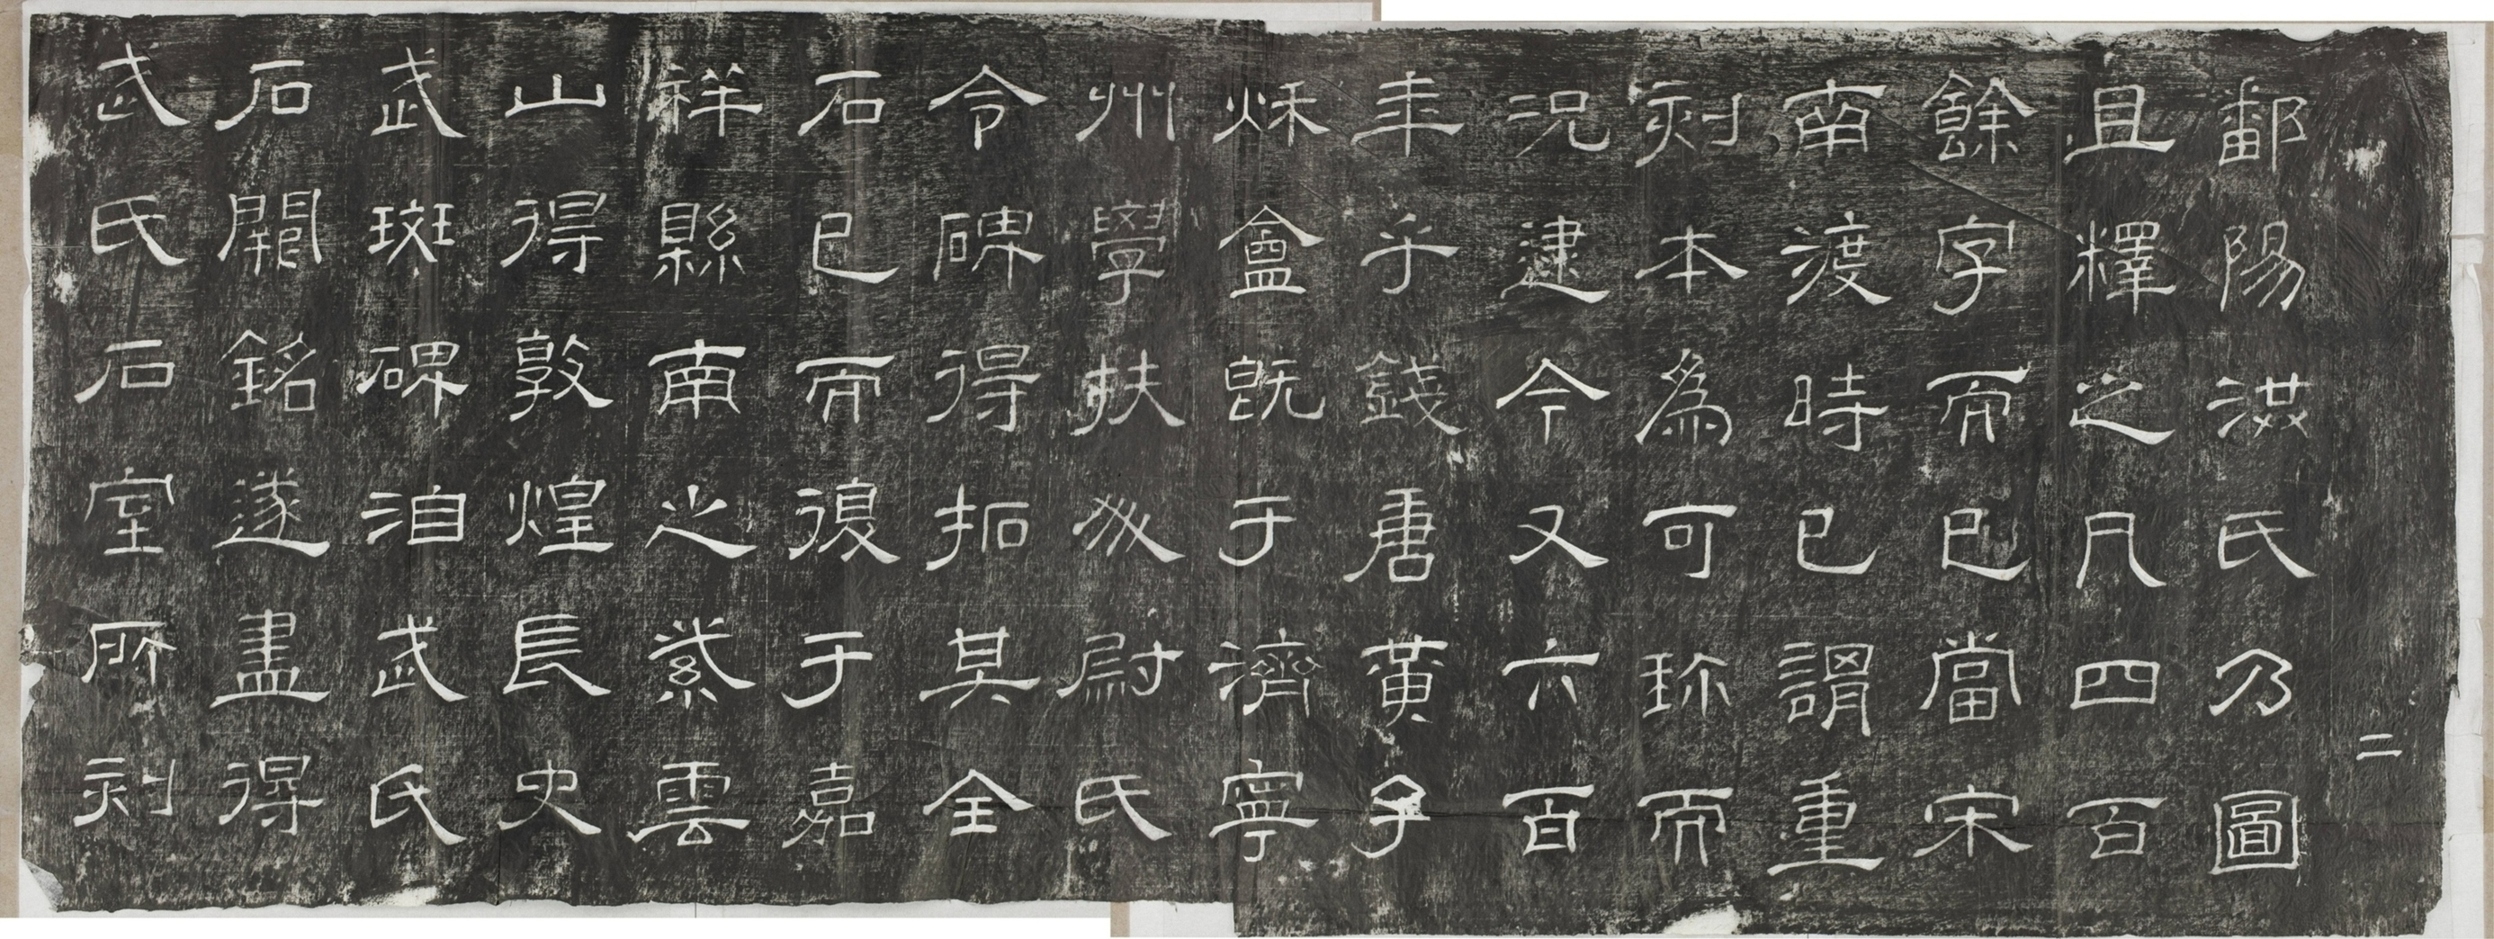 二
鄱陽洪氏乃圖
且釋之凡四百
餘字而已當宋
南渡時已謂重
刻本為可珍而
況逮今又六百
年乎錢唐黃子
秌盦既于濟寧
州學扶升尉氏
令碑得拓其全
石已而復于嘉
祥縣南之紫雲
山得敦煌長史
武斑碑洎武氏
石闕銘遂盡得
武氏石室所刻